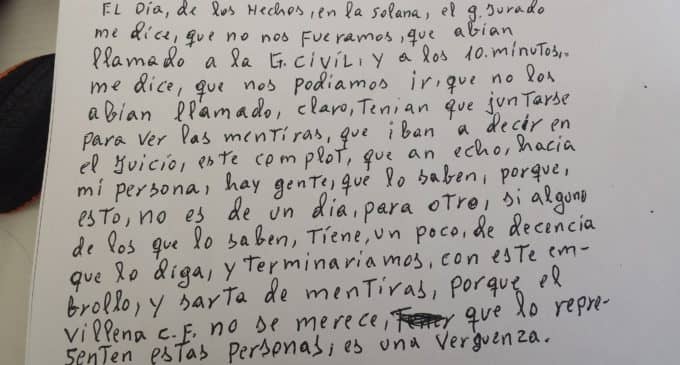 EL Día, de los Hechos, en la solana, el g. Jurado
me dice, que no nos Fueramos, que abian
llamado a la G. Civíl, y a los 10. minutos,.
me dice, que nos podíamos ir, que no los
abían llamado, claro, Tenían que juntarse
para ver las mentíras, que iban a decír en
el Juicío, este complot, que an echo, hacía
mí persona, hay gente, que lo saben, porque,
esto, no es de un dia, para otro, si alguno
de los que lo saben, Tíene, un poco, de decencía
que lo díga, y termínaríamos, con este em-
brollo, y sarta de mentíras, porque el
Víllena C.F. no se merece, que lo repre-
senten estas personas, es una verguenza.